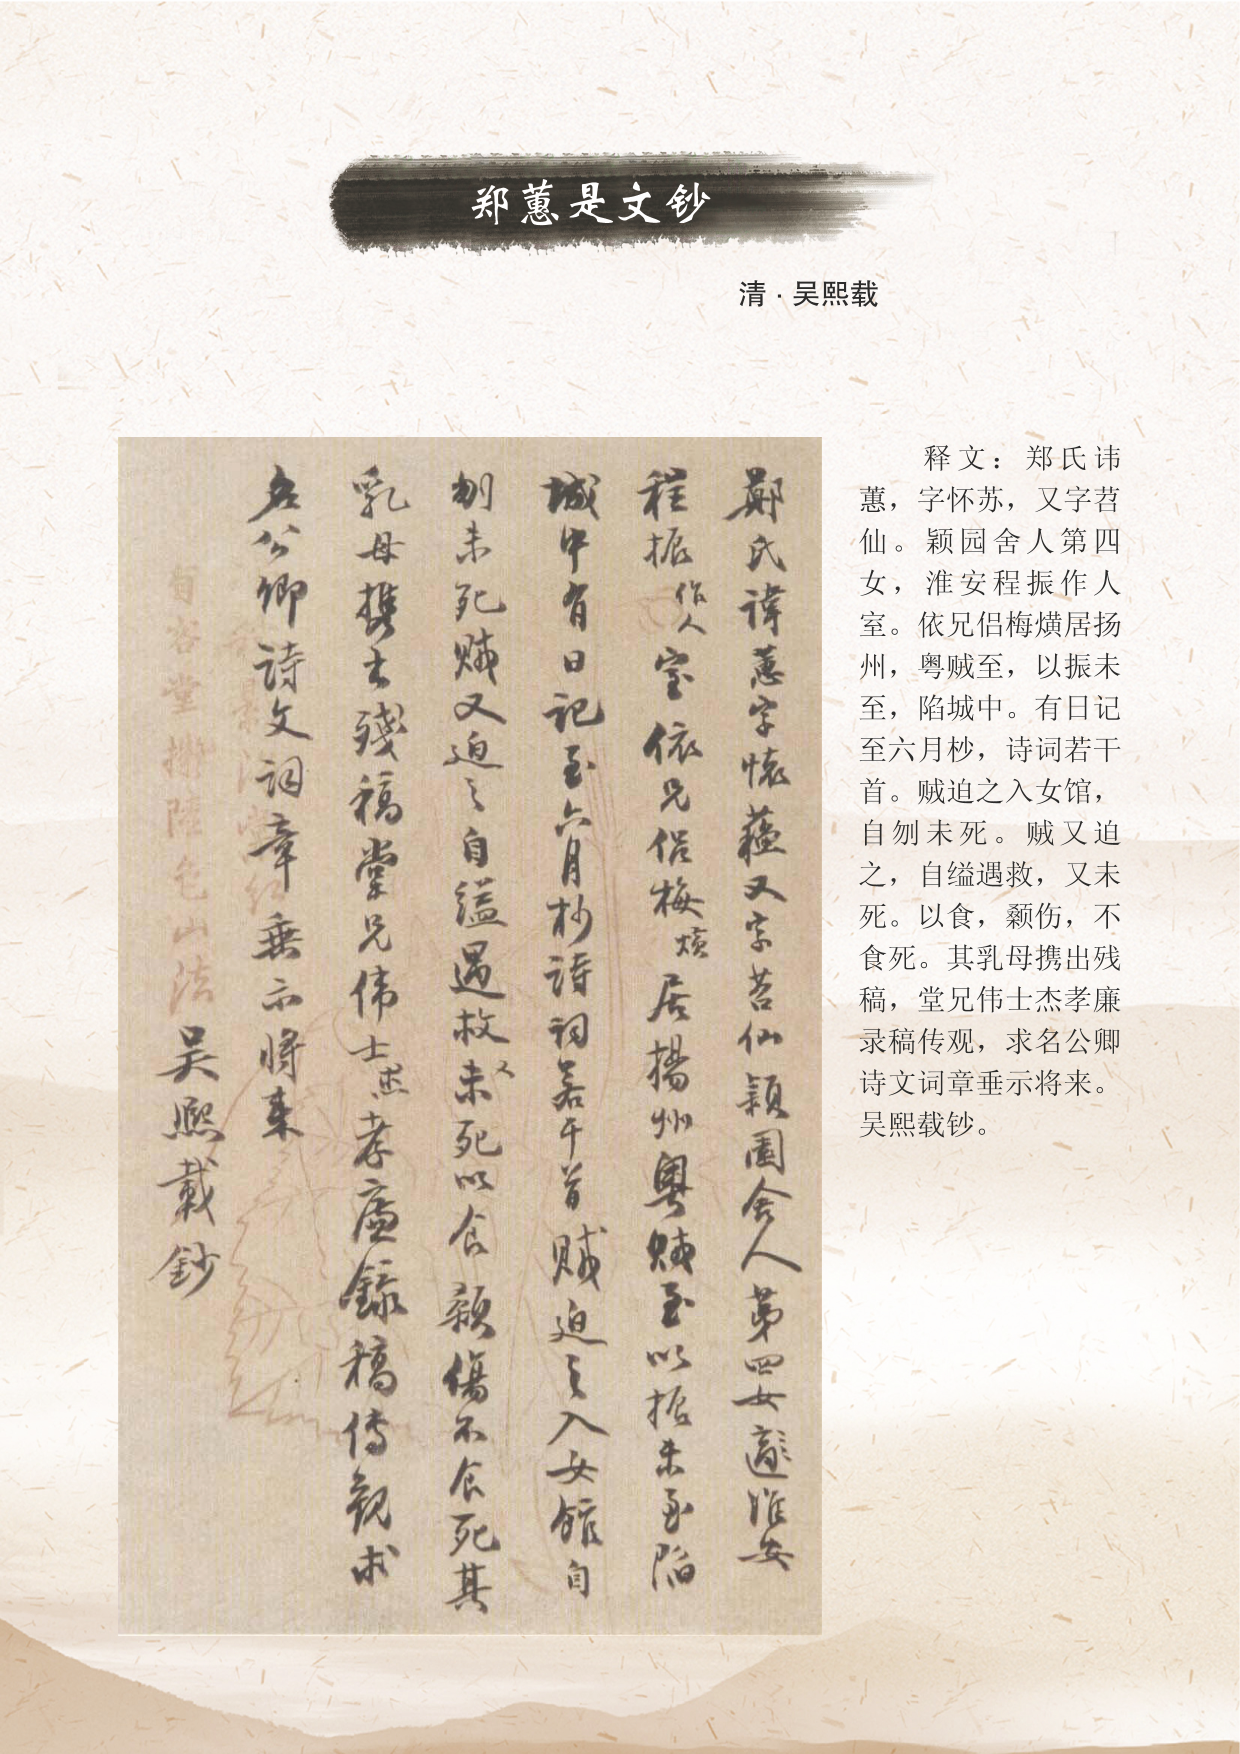 郑蕙是文钞
清·吴熙载
鄭氏諱蕙字懷蘓又字苕仙穎園舍人第四女適淮安
程振作人室依兄侶梅熿居揚州粵賊至以振未至陷
城中有日記至六月杪詩詞若干首賊迫之入女館自
刎未死賊又迫之自縊遇救又未死以食顙傷不食死其
乳母携出殘稿堂兄偉士杰孝廉錄稿傳觀求
名公卿詩文詞章垂示將來
吳熙載鈔
释文：郑氏讳
蕙，字怀苏，又字苕
仙。颖园舍人第四
女，淮安程振作人
室。依兄侣梅熿居扬
州，粤贼至，以振未
至，陷城中。有日记
至六月杪，诗词若干
首。贼迫之入女馆，
自刎未死。贼又迫
之，自缢遇救，又未
死。以食，颡伤，不
食死。其乳母携出残
稿，堂兄伟士杰孝廉
录稿传观，求名公卿
诗文词章垂示将来。
吴熙载钞。